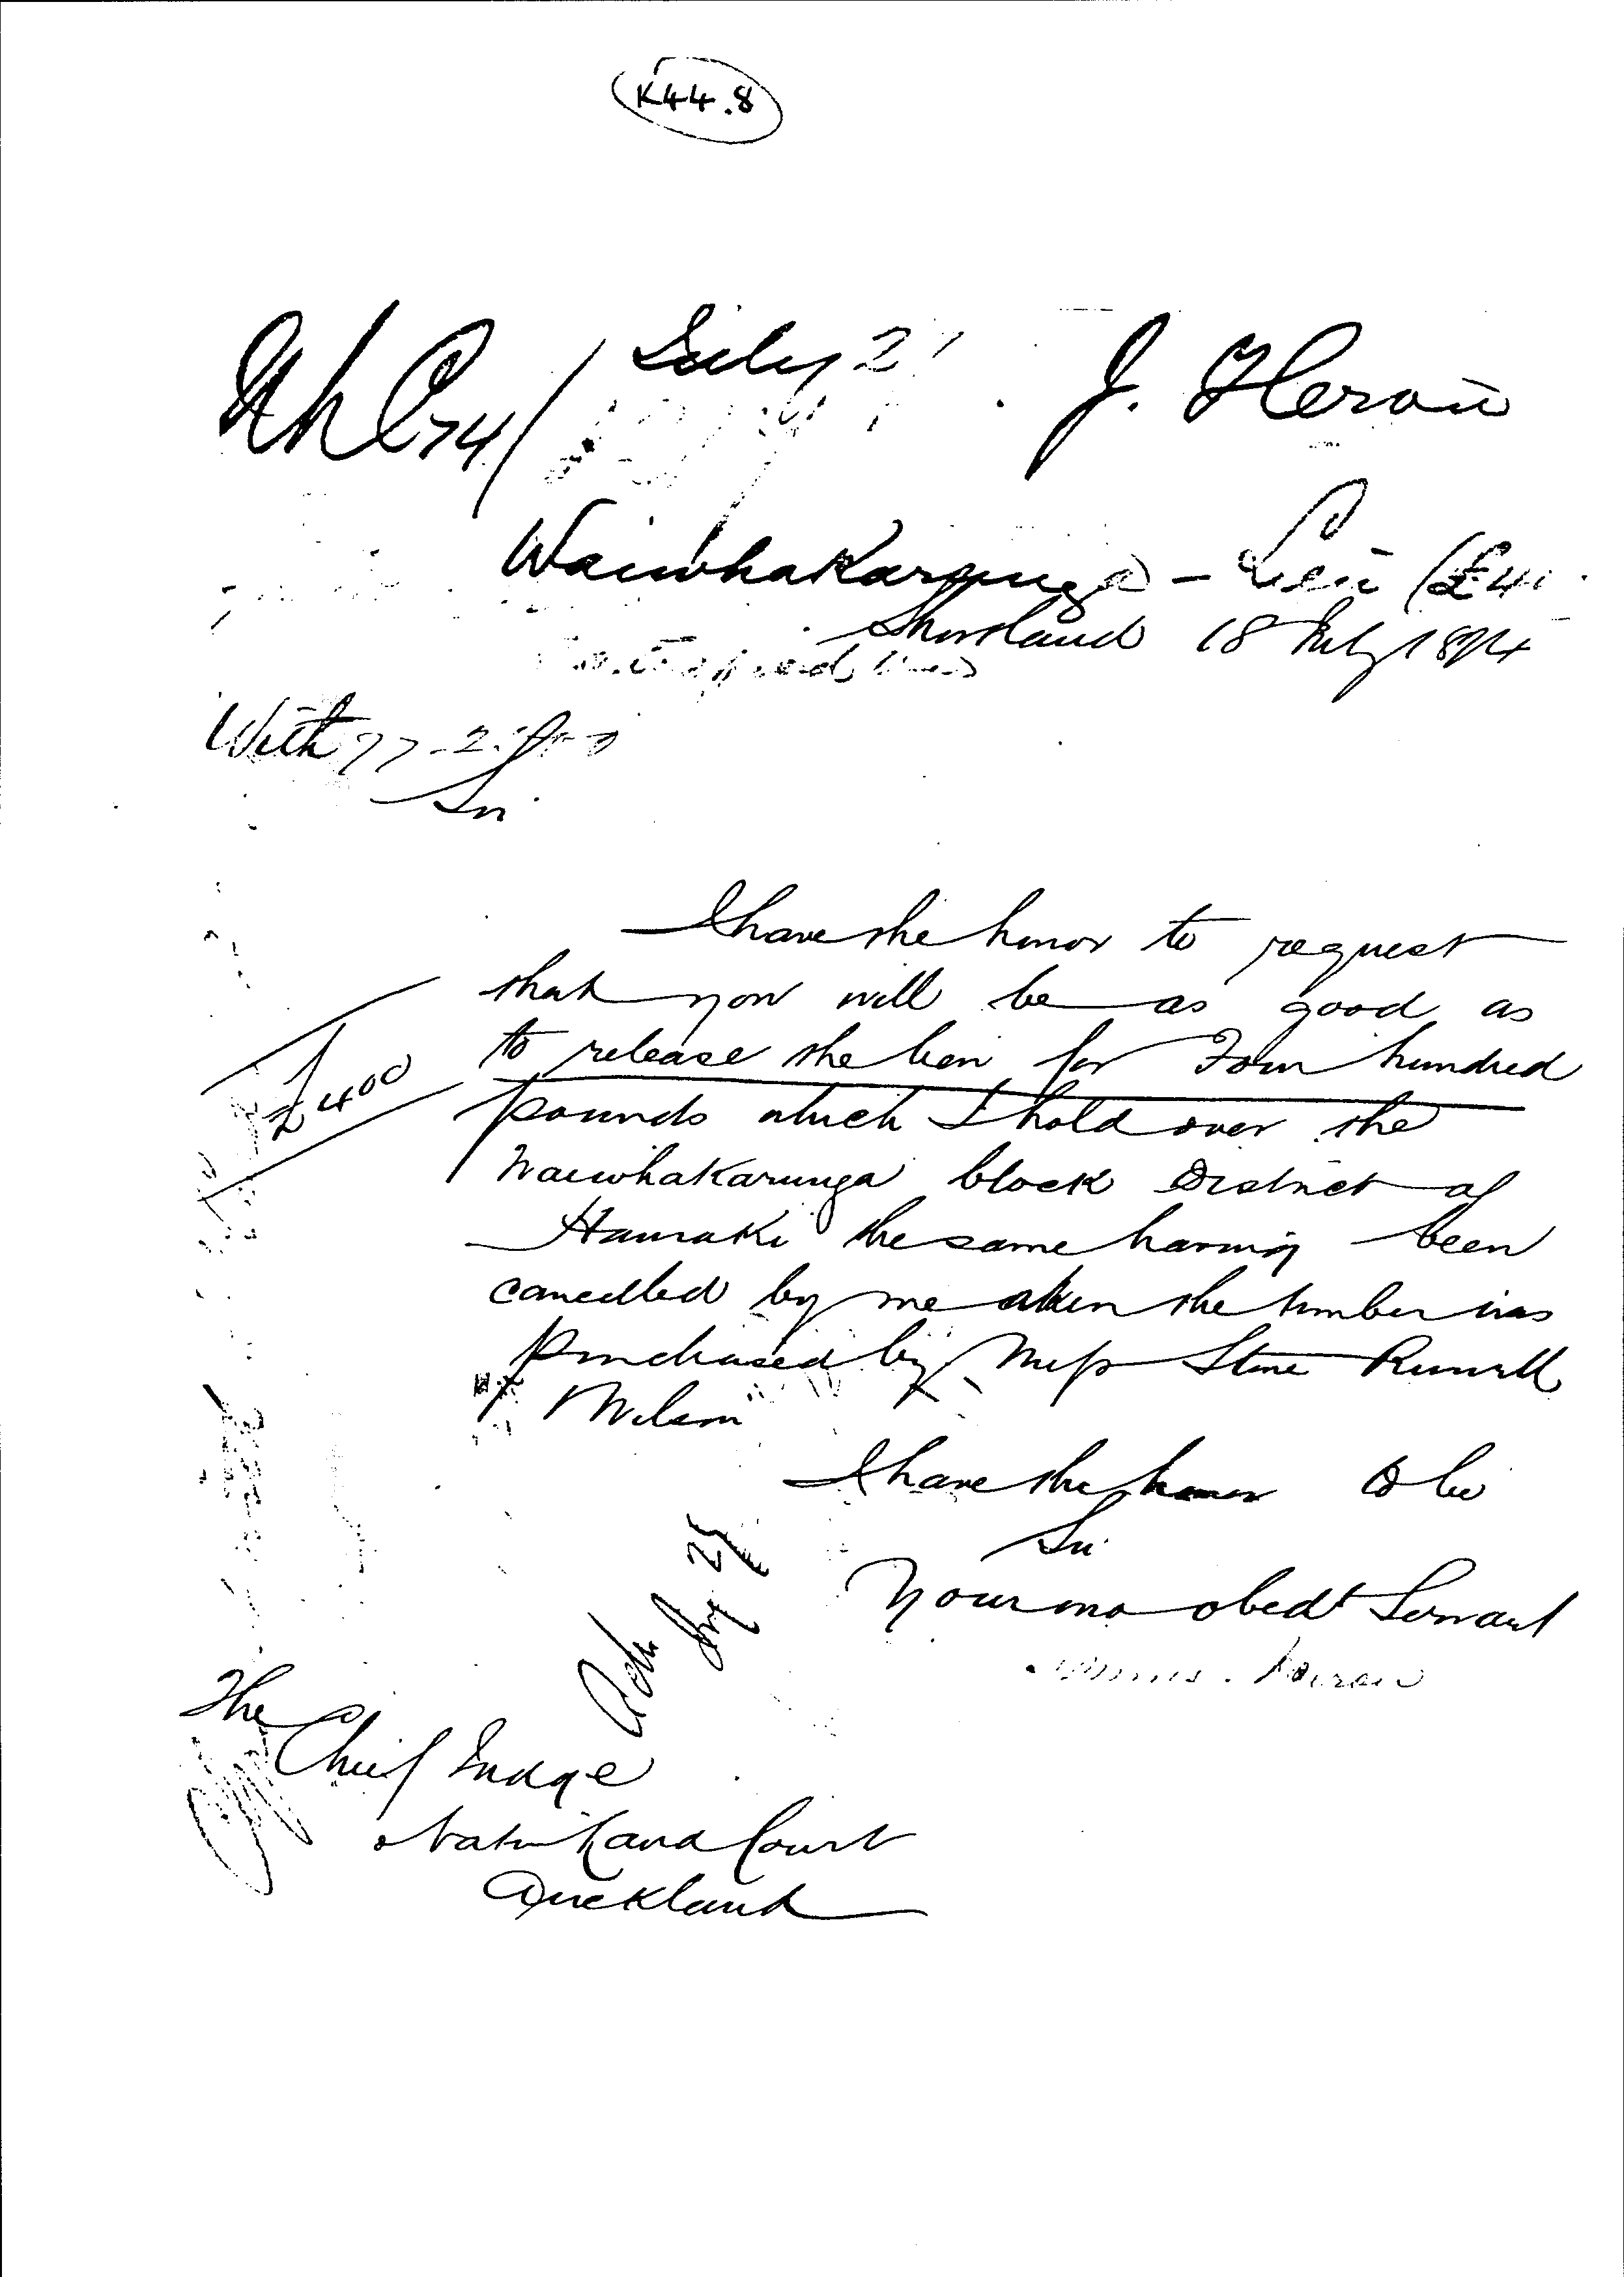 K44.8
July 2
J. Heron
Waiwhakarunga - Lien (£4
Shortland 18 July 1874
With
Sir
I have the honor to request
that you will be as good as
to release the lien for Four hundred
£400
pounds which I hold over the
Waiwhakarunga block District of
Hauraki the same having been
cancelled by me when the timber was
purchased by Mess Stone Russell
Wilson
I have the honor to be
Sir
Your mo obedt Servant
Heron
Ack July 25
The
Chief Judge
Native Land Court
Auckland